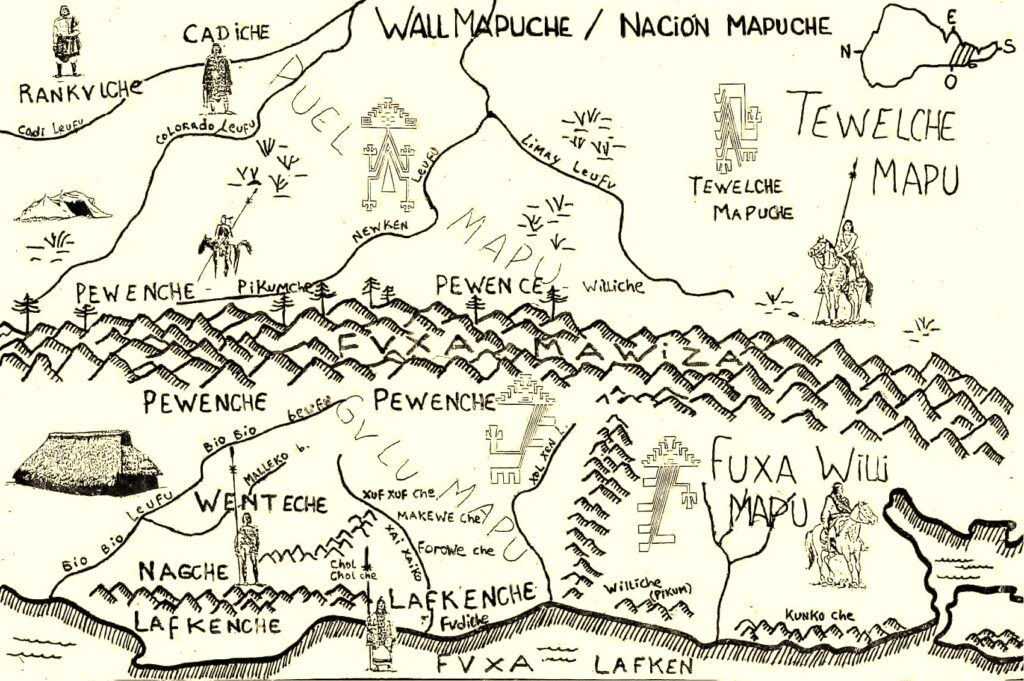 WALL MAPUCHE / NACIÓN MAPUCHE
E
N
S
O
CADICHE
RANKVLCHE
CADI LEUFU
COLORADO LEUFU
PUEL
MAPU
TEWELCHE
MAPU
TEWELCHE
MAPUCHE
LIMAY LEUFU
NEWKEN
LEUFU
PEWENCHE - PIKUMCHE
PEWENCE - WILLICHE
FVXA MAWIZA
PEWENCHE
PEWENCHE
GVLU MAPU
FUXA WILLI
MAPU
BIO BIO
MALLEKO b.
WENTECHE
LEUFU
BIO BIO
XUF XUF CHE
MAKEWE CHE
FOROWE CHE
XAI XAIKO
XOL XEN L.
CHOL
CHOL CHE
NAGCHE
LAFKENCHE
LAFKENCHE
FVDICHE
WILLICHE
(PIKUM)
KUNKO CHE
FVXA LAFKEN